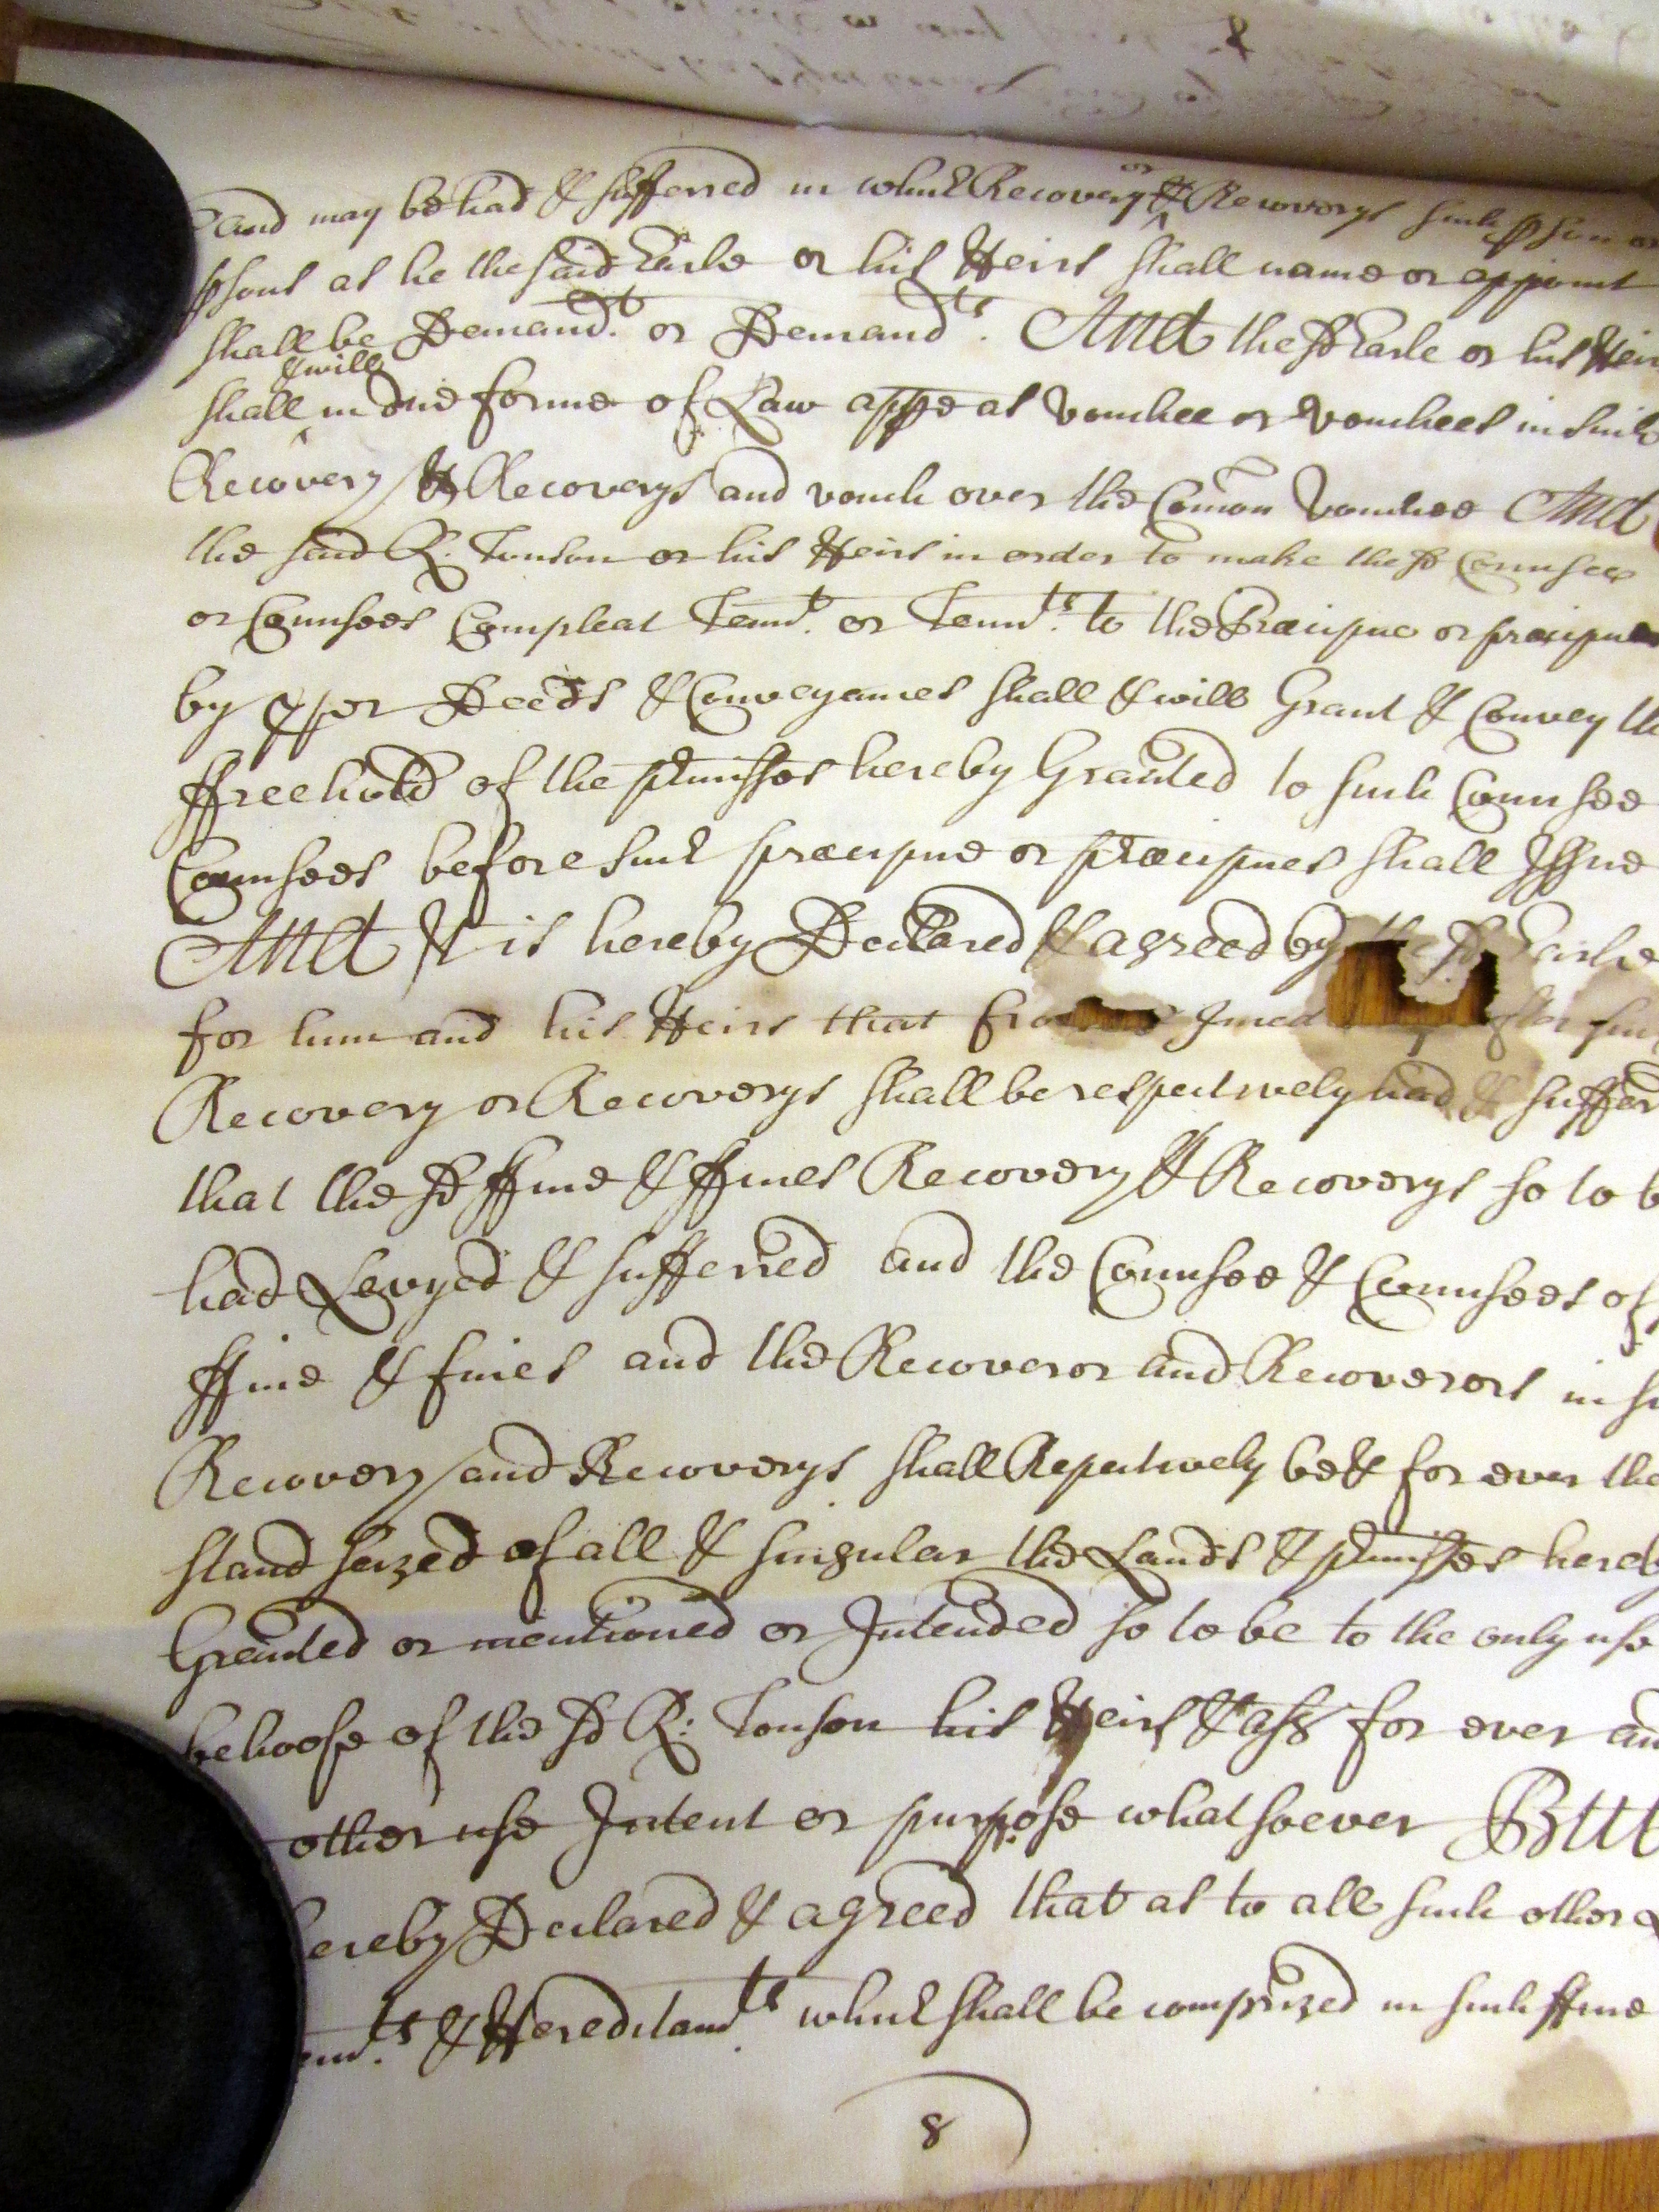 and may be had & suffered in which Recovery or & Recoverys such pson or
psons as he the said Earle or his Heirs shall name or appoint
shall be Demandt. or Demandts. And the sd Earle or his Heirs
shall & will in due forme of Law appe as Vouchee or Vouchees in such
Recovery & Recoverys and vouch over the Comon Vouchee And
the said R: Tonson or his Heirs in order to make the sd Connsee
or Connsees Compleat Tennt. or Tennts. to the Præcipue or præcipues
by pper Deeds & Conveyances shall & will Grant & Convey the
ffreehold of the pmisses hereby Granted to such Connsee
Connsees before such præcipue or præcipues shall Issue
And It is hereby Declared & agreed by the sd Earle
for him and his Heirs that from Imed after such
Recovery or Recoverys shall be respectively had & suffer
that the sd ffine & ffines Recovery & Recoverys so to b
had Levyed & sufferred and the Connsee & Connsees of
ffine & fines and the Recoveror and Recoverors in su
Recovery and Recoverys shall Repectively be & for ever the
stand seized of all & singular the Lands & pmisses hereb
Granted or mentioned or Intended so to be to the only use
behoofe of the sd R: Tonson his Heirs & ass for ever an
other use Intent or purpose whatsoever But
ereby Declared & agreed that as to all such other
ents. & Hereditamts which shall be comprized in such ffine
8